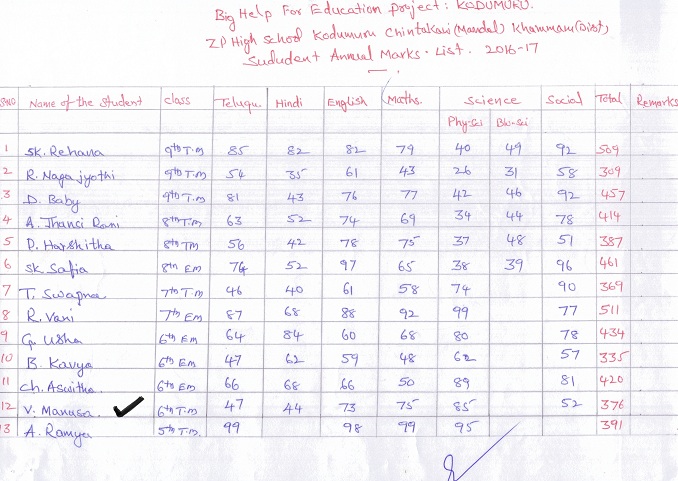 Big Help For Education project: KODUMURU.
ZP High School Kodumuru Chintakani (Mandal) Khammam (Dist)
Sududent Annual Marks. List. 2016-17
S.No Name of the Student class Telugu. Hindi English Maths. Science Social Total Remarks
Phy.sci Bio-sci
1 SK. Rehana 9th T.M 85 82 82 79 40 49 92 509
2 R. Nagajyothi 9th T.M 54 35 61 43 26 31 58 309
3 D. Baby 9th T.M 81 43 76 77 42 46 92 457
4 A. Jhanci Rani 8th T.M 63 52 74 69 34 44 78 414
5 P. Harshitha 8th TM 56 42 78 75 37 48 51 387
6 SK Safia 8th EM 74 52 97 65 38 39 96 461
7 T. Swapna 7th T.M 46 40 61 58 74 90 369
8 R. Vani 7th EM 87 68 88 92 99 77 511
9 G. Usha 6th EM 64 84 60 68 80 78 434
10 B. Kavya 6th EM 47 62 59 48 62 57 335
11 Ch. Aswitha 6th EM 66 68 66 50 89 81 420
12 V. Manusa. 6th T.M 47 44 73 75 85 52 376
13 A. Ramya 5th T.M. 99 98 99 95 391